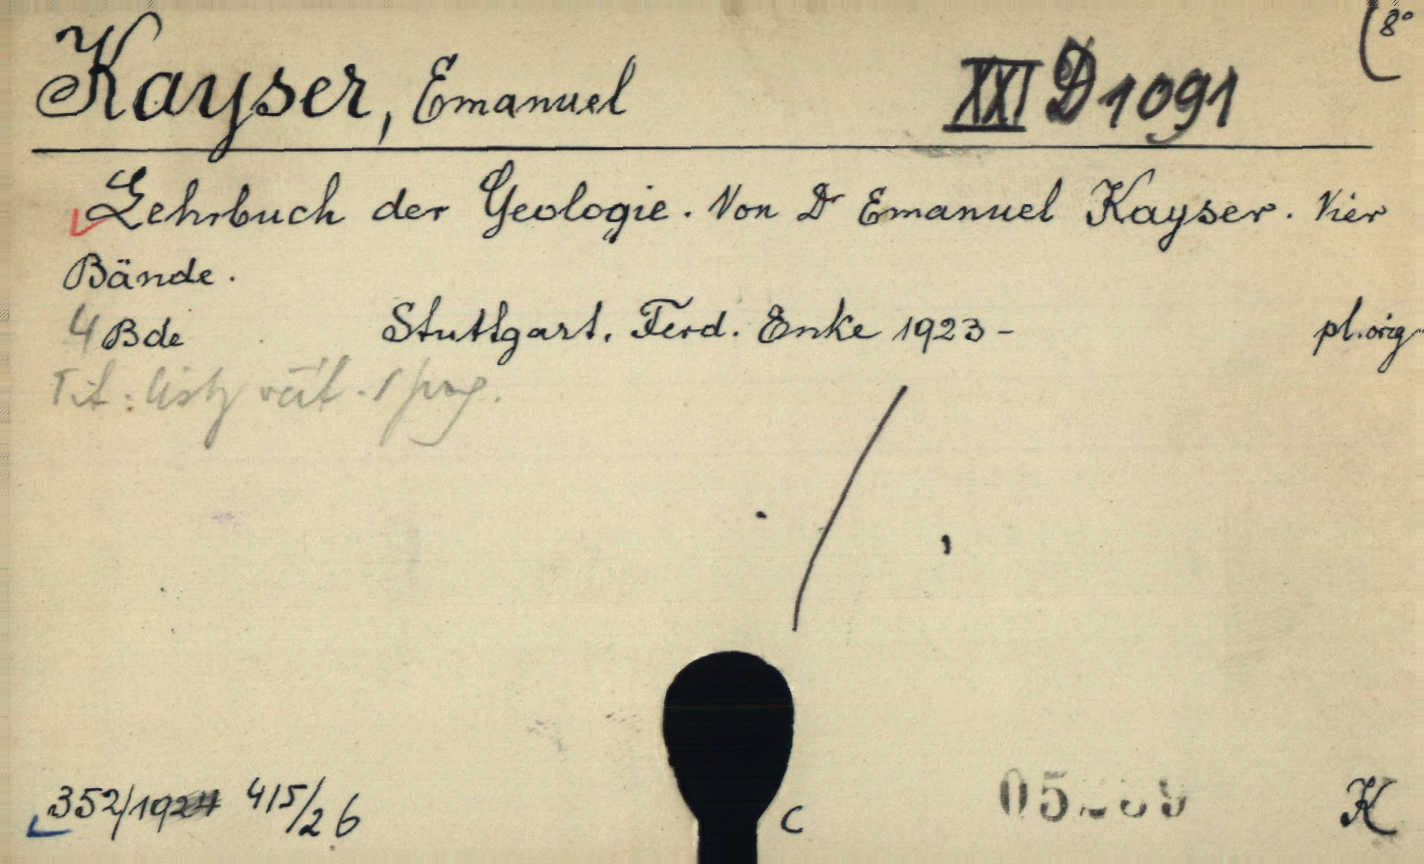 8°
Kayser, Emanuel XXI D 1091
Lehrbuch der Geologie. Von Dr Emanuel Kayser. Vier
Bände.
4 Bde Stuttgart. Ferd. Enke 1923 - pl. orig.
Tit. listy
352/1924 415/26
C K